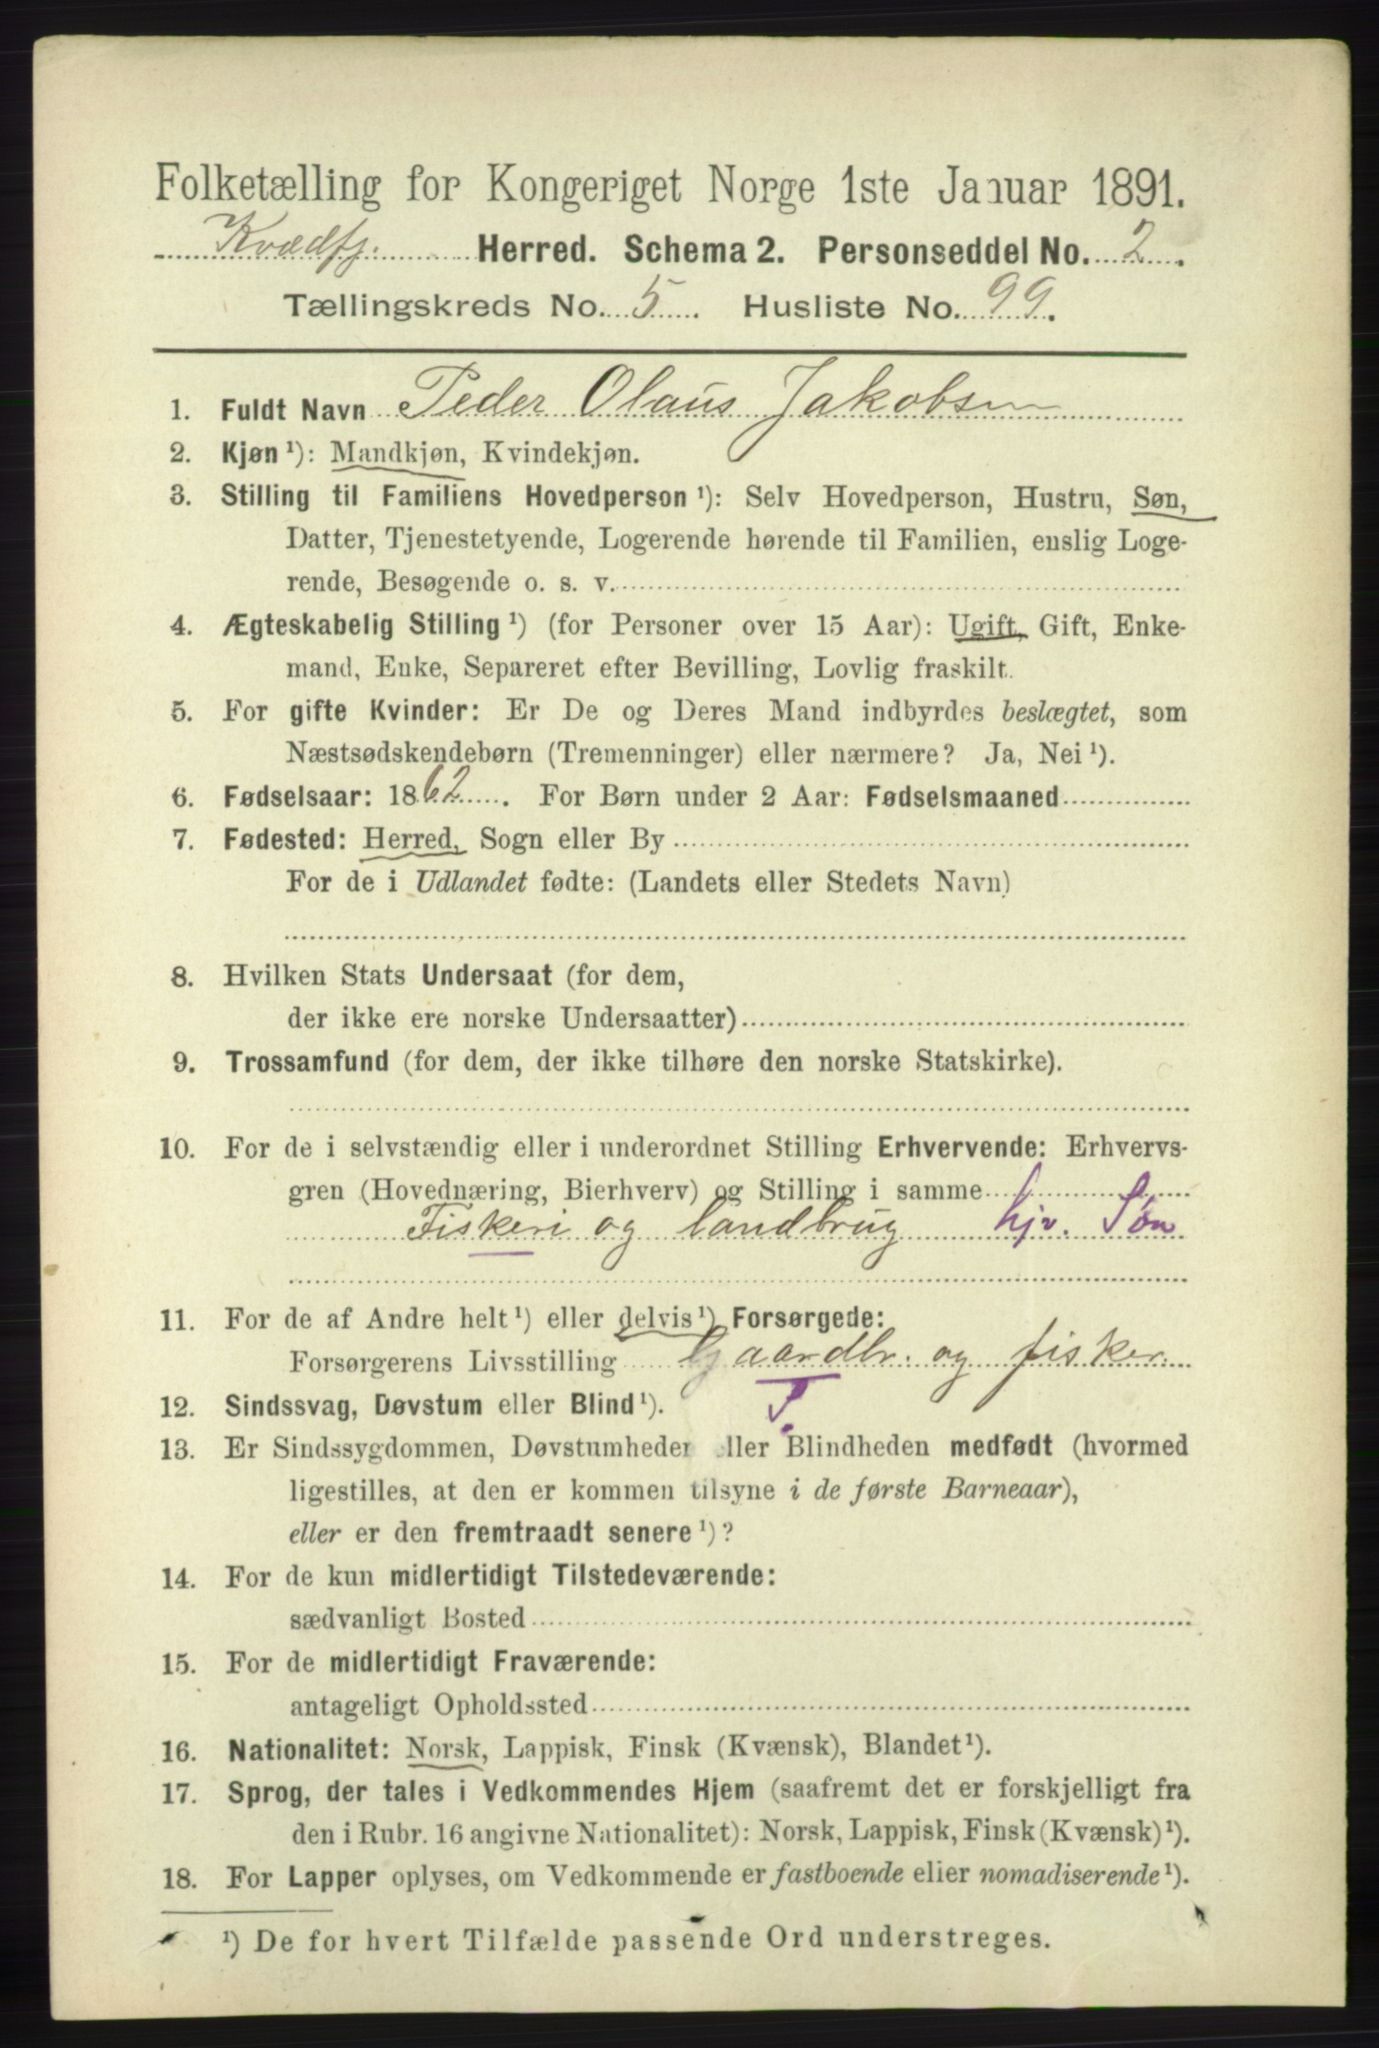 Folketælling for Kongeriget Norge 1ste Januar 1891.
Kvædfj. Herred. Schema 2. Personseddel No. 2.
Tællingskreds No. 5. Husliste No. 99.
1. Fuldt Navn Peder Olaus Jakobsen
2. Kjøn ¹): Mandkjøn, Kvindekjøn.
3. Stilling til Familiens Hovedperson ¹): Selv Hovedperson, Hustru, Søn,
Datter, Tjenestetyende, Logerende hørende til Familien, enslig Loge-
rende, Besøgende o. s. v.
4. Ægteskabelig Stilling ¹) (for Personer over 15 Aar): Ugift, Gift, Enke-
mand, Enke, Separeret efter Bevilling, Lovlig fraskilt.
5. For gifte Kvinder: Er De og Deres Mand indbyrdes beslægtet, som
Næstsødskendebørn (Tremenninger) eller nærmere? Ja, Nei ¹).
6. Fødselsaar: 1862. For Børn under 2 Aar: Fødselsmaaned
7. Fødested: Herred, Sogn eller By
For de i Udlandet fødte: (Landets eller Stedets Navn)
8. Hvilken Stats Undersaat (for dem,
der ikke ere norske Undersaatter)
9. Trossamfund (for dem, der ikke tilhøre den norske Statskirke).
10. For de i selvstændig eller i underordnet Stilling Erhvervende: Erhvervs-
gren (Hovednæring, Bierhverv) og Stilling i samme
Fiskeri og landbrug hjv. Søn
11. For de af Andre helt ¹) eller delvis ¹) Forsørgede:
Forsørgerens Livsstilling Gaardbr. og fisker
12. Sindssvag, Døvstum eller Blind ¹).
13. Er Sindssygdommen, Døvstumheden eller Blindheden medfødt (hvormed
ligestilles, at den er kommen tilsyne i de første Barneaar),
eller er den fremtraadt senere ¹)?
14. For de kun midlertidigt Tilstedeværende:
sædvanligt Bosted
15. For de midlertidigt Fraværende:
antageligt Opholdssted
16. Nationalitet: Norsk, Lappisk, Finsk (Kvænsk), Blandet ¹).
17. Sprog, der tales i Vedkommendes Hjem (saafremt det er forskjelligt fra
den i Rubr. 16 angivne Nationalitet): Norsk, Lappisk, Finsk (Kvænsk) ¹).
18. For Lapper oplyses, om Vedkommende er fastboende eller nomadiserende ¹).
¹) De for hvert Tilfælde passende Ord understreges.